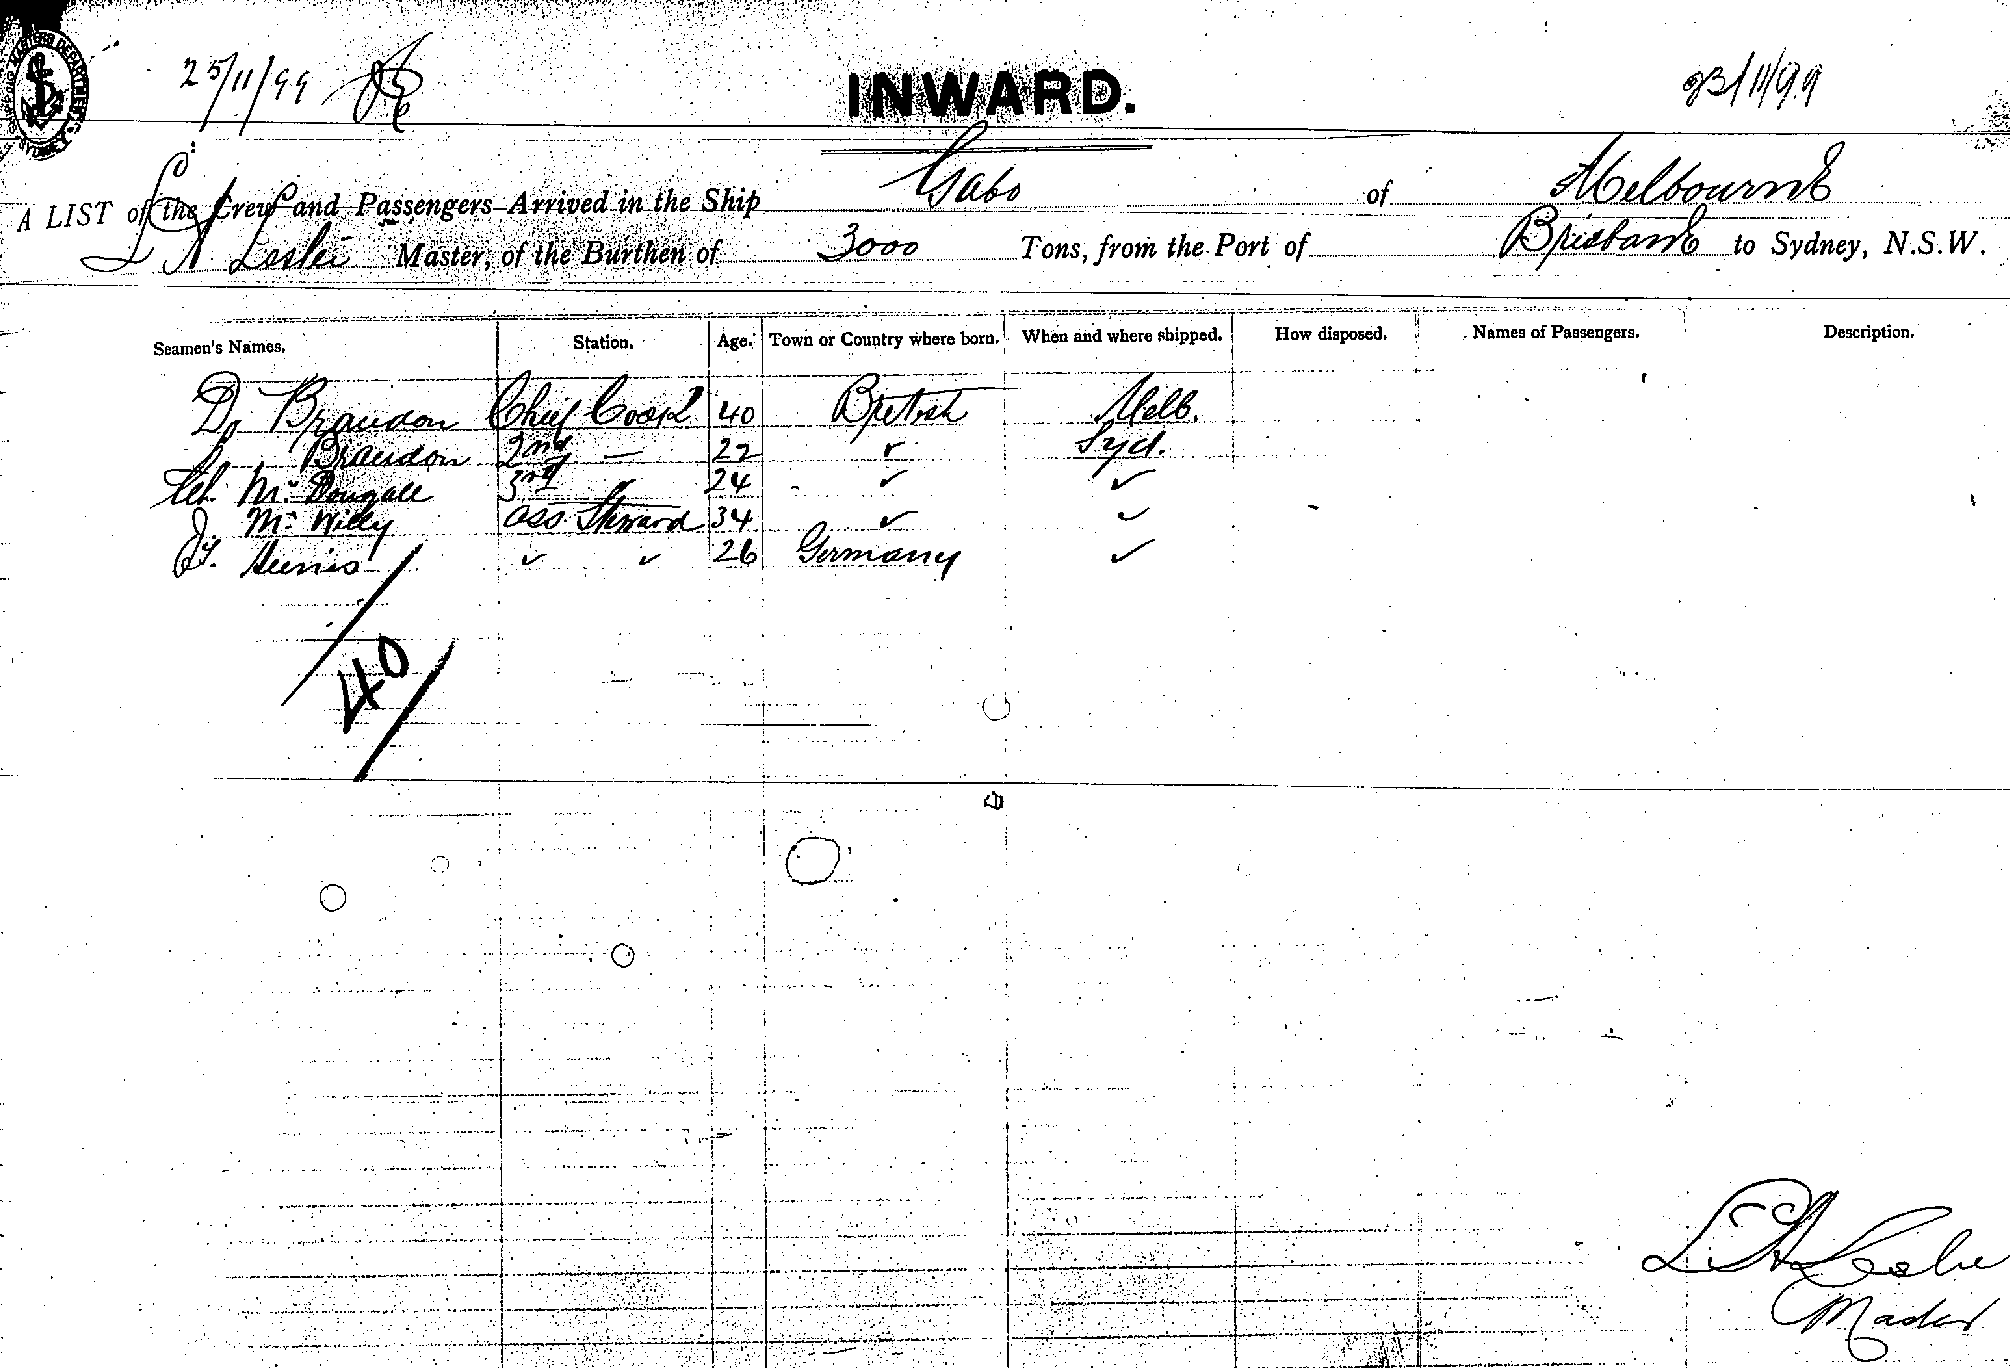 25/11/99
INWARD.
23/11/99
A LIST of the Crew and Passengers Arrived in the Ship Gabo of Melbourne
L A Leslie Master, of the Burthen of 3000 Tons, from the Port of Brisbane to Sydney, N.S.W.
Seamen's Names. Station. Age. Town or Country where born. When and where shipped. How disposed. Names of Passengers. Description.
D. Brandon Chief Cook 40 British Melb.
Brandon 2nd — 22 ✓ Syd.
McDougall 3rd 24 ✓ ✓
McWilly ass Steward 34 ✓ ✓
✓ ✓ 26 Germany ✓
40
L A Leslie
Master